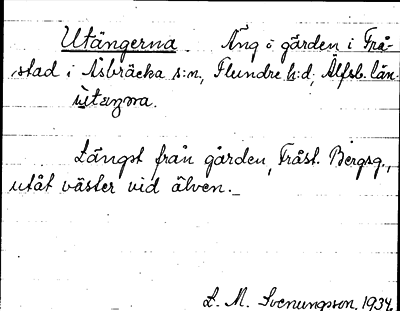 Utängerna. Äng i gården i Frå-
stad i Åsbräcka s:n, Flundre h:d, Älfsb. län.
ùtæŋɷna.
Längst från gården, Fråst. Bergsg.,
utåt väster vid älven._
L. M. Svenungsson. 1934.